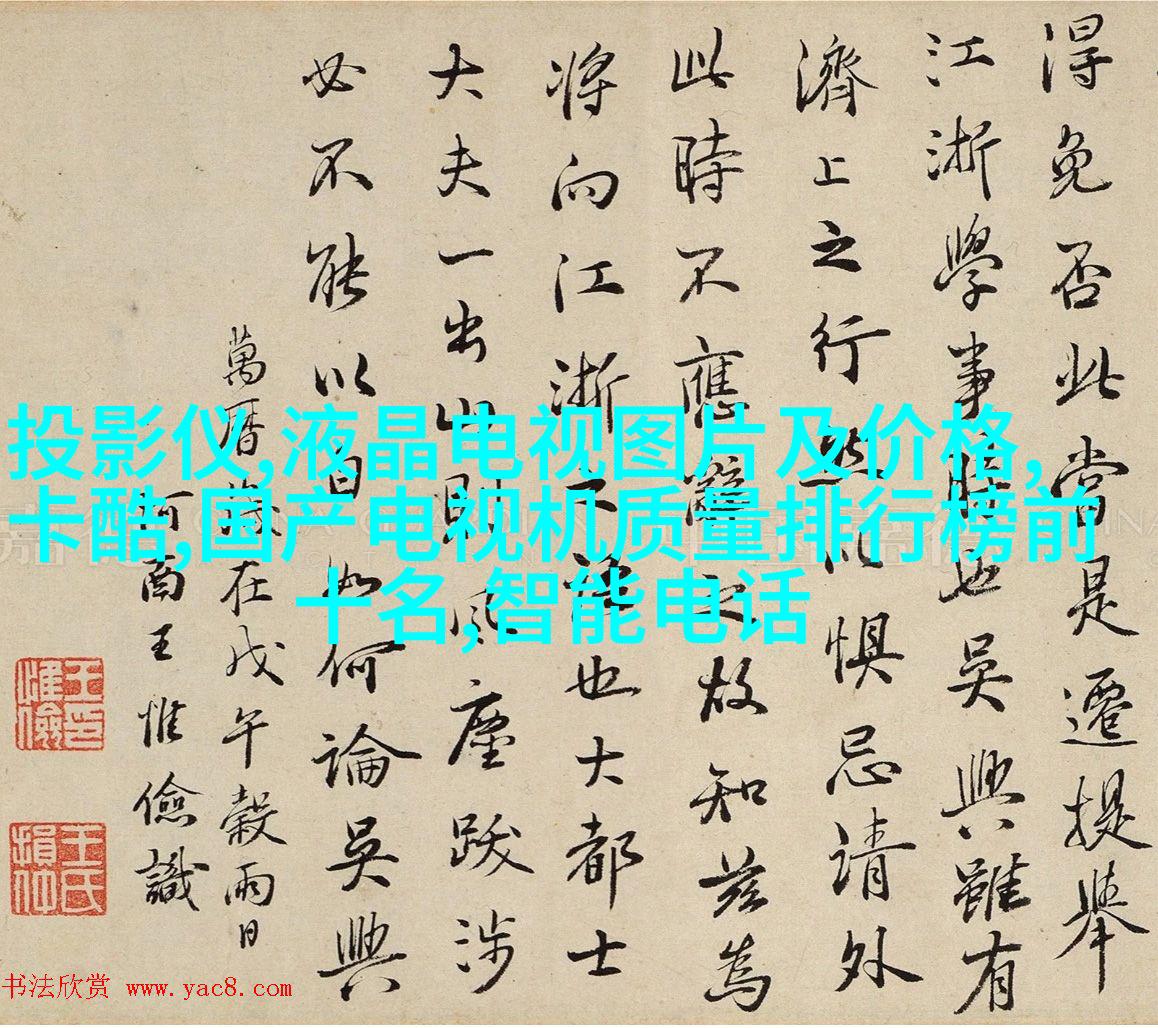 得免否此當是遷提舉
江浙學事時也吳興雖有
濟上之行然以懼忌請外
此時不應辭之故知茲為
將向江浙不也大都士
大夫一出山則風塵跋涉
必不能以自如何論吳興
萬曆歲在戊午穀雨日
王惟儉識
王惟儉印
王氏損仲
投影仪,液晶电视图片及价格,
卡酷,国产电视机质量排行榜前
十名,智能电话
书法欣赏 www.yac8.com